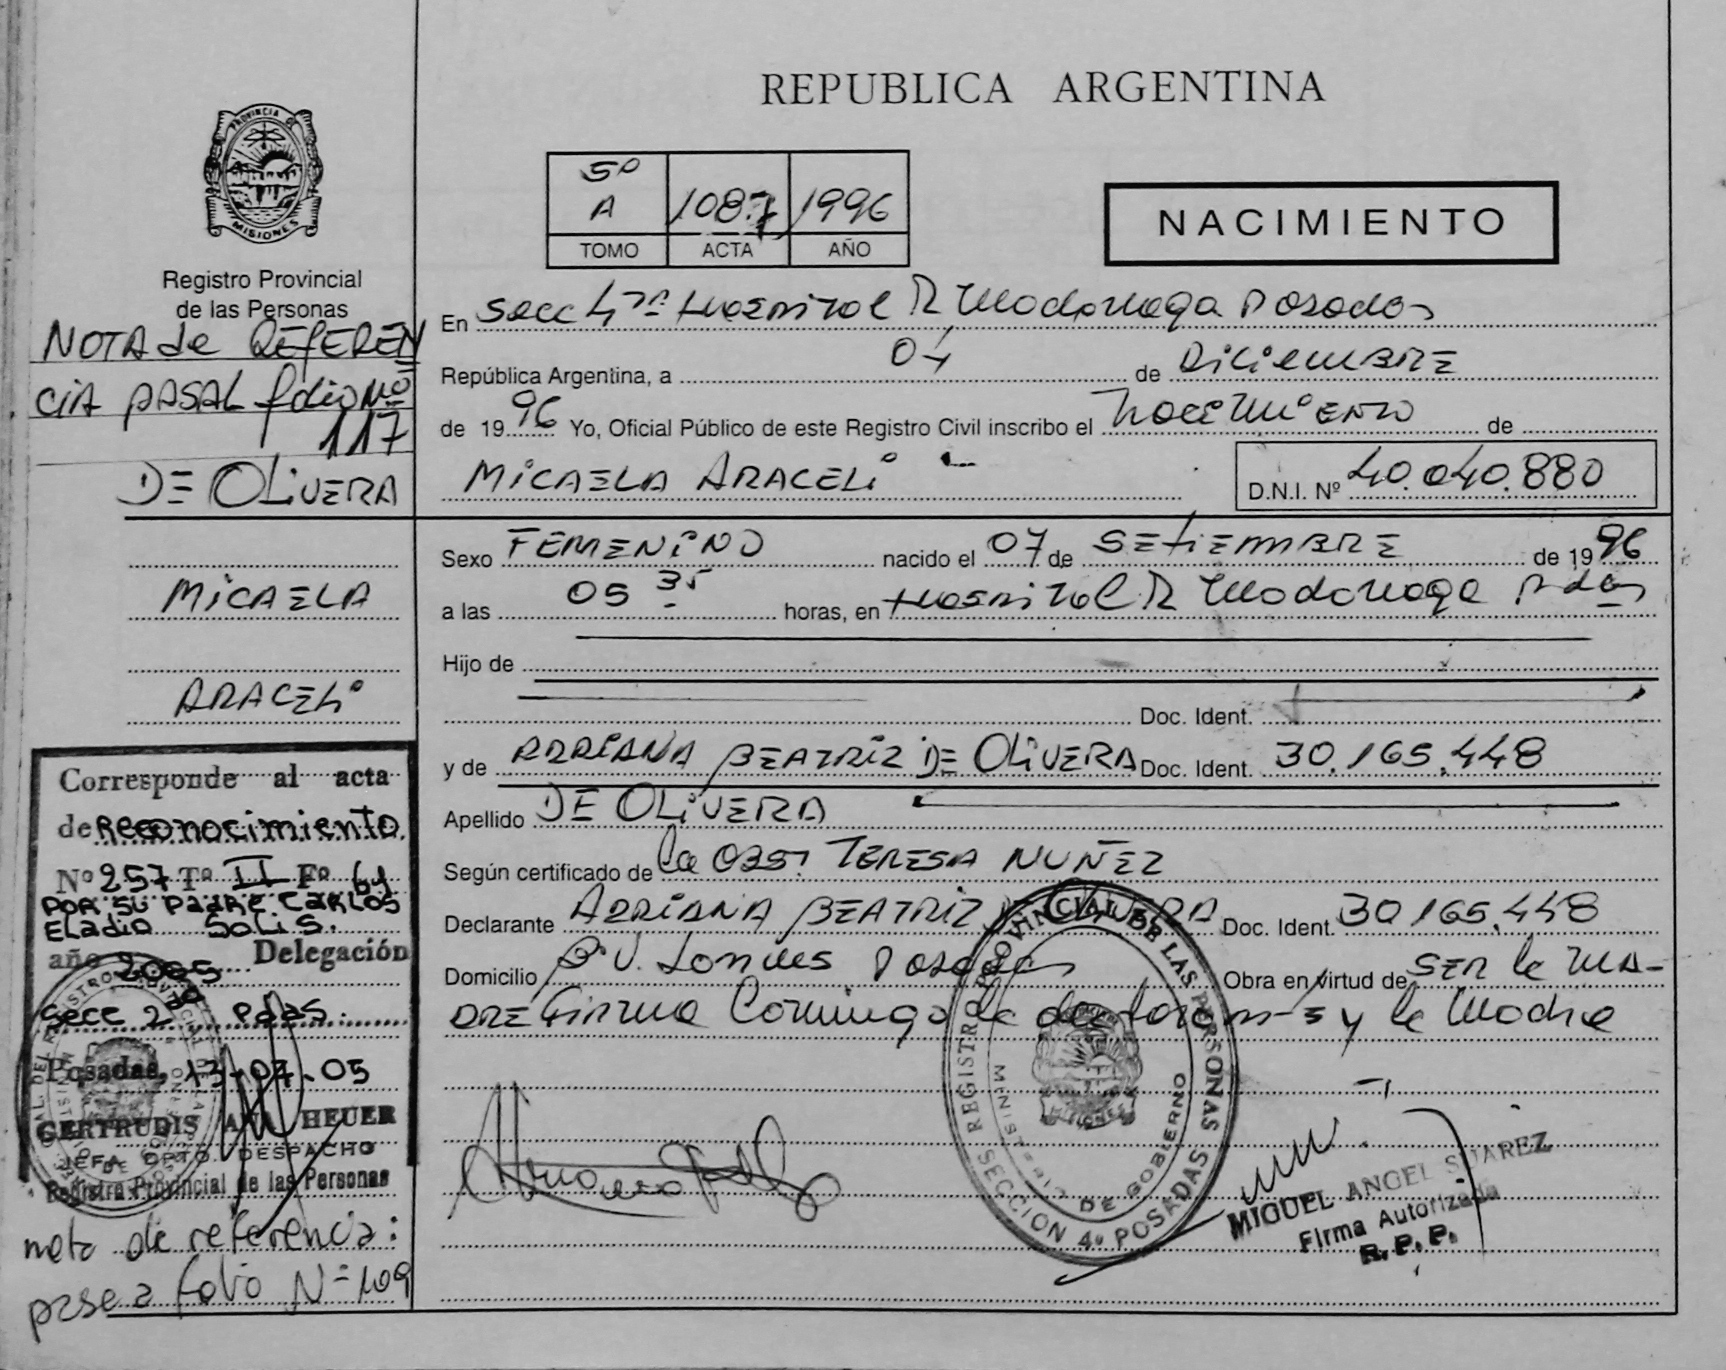 REPUBLICA ARGENTINA
PROVINCIA DE
MISIONES
Registro Provincial
de las Personas
5º
A 1087 1996
TOMO ACTA AÑO
NACIMIENTO
NOTA de REFEREN
CIA PASAL folio Nº
117
DE OLIVERA
MICAELA
ARACELi
En Secc 4ta Hospital R Madariaga Posadas
República Argentina, a 04 de Diciembre
de 1996 Yo, Oficial Público de este Registro Civil inscribo el Nacimiento de
MICAELA ARACELi D.N.I. Nº 40.040.880
Sexo FEMENINO nacido el 07 de SETiEMBRE de 1996
a las 05 35 horas, en Hospital R Madariaga Pdas
Hijo de
Doc. Ident.
y de ADRIANA BEATRIZ DE OLIVERA Doc. Ident. 30.165.448
Apellido DE OLIVERA
Según certificado de la OBST TERESA NUÑEZ
Declarante ADRIANA BEATRIZ OLIVERA Doc. Ident. 30165.448
Domicilio Bº V. Lourdes Posadas Obra en virtud de SER la MA-
DRE Firma Conmigo la declarante y la Madre
Corresponde al acta
de Reconocimiento.
Nº 257 Tº II Fº 64
POR SU PADRE CARLOS
Eladio SOLIS.
año 2005 Delegación
Secc 2da Pdas.
Posadas, 13-07-05
GERTRUDIS ANA HEUER
JEFA DPTO. DESPACHO
Registro Provincial de las Personas
nota de referencia:
pase a folio Nº 109
REGISTRO PROVINCIAL DE LAS PERSONAS
MINISTERIO DE GOBIERNO
SECCION 4º POSADAS
MIGUEL ANGEL SUAREZ
Firma Autorizada
R.P.P.